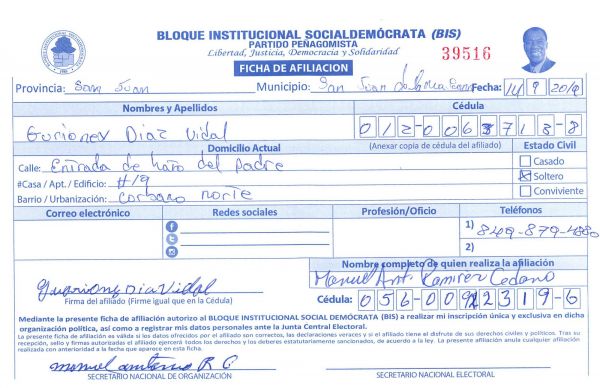 BLOQUE INSTITUCIONAL SOCIALDEMÓCRATA (BIS)
PARTIDO PEÑAGOMISTA
Libertad, Justicia, Democracia y Solidaridad
39516
FICHA DE AFILIACION
Provincia: San Juan Municipio: San Juan de la Maguana Fecha: 14 9 2019
Nombres y Apellidos Cédula
Gurioney Diaz Vidal 012-0063713-8
Domicilio Actual (Anexar copia de cédula del afiliado) Estado Civil
Calle: Entrada de hato del Padre Casado
#Casa / Apt. / Edificio: #19 Soltero
Barrio / Urbanización: Corbano norte Conviviente
Correo electrónico Redes sociales Profesión/Oficio Teléfonos
1) 849-879-4880
2)
Nombre completo de quien realiza la afiliación
Manuel Ant. Ramirez Cedano
Diaz Vidal
Firma del afiliado (Firme igual que en la Cédula) Cédula: 056-0092319-6
Mediante la presente ficha de afiliación autorizo al BLOQUE INSTITUCIONAL SOCIAL DEMÓCRATA (BIS) a realizar mi inscripción única y exclusiva en dicha
organización política, así como a registrar mis datos personales ante la Junta Central Electoral.
La presente ficha de afiliación es válida si los datos ofrecidos por el afiliado son correctos, las declaraciones veraces y si el afiliado tiene el disfrute de sus derechos civiles y políticos. Tras su
recepción, sello y firmas autorizadas el afiliado ejercerá todos los derechos y los deberes estatutariamente sancionados, de acuerdo a la ley. La presente afiliación anula cualquier afiliación
realizada con anterioridad a la fecha que aparece en esta ficha.
manuel antonio R C
SECRETARIO NACIONAL DE ORGANIZACIÓN SECRETARIO NACIONAL ELECTORAL